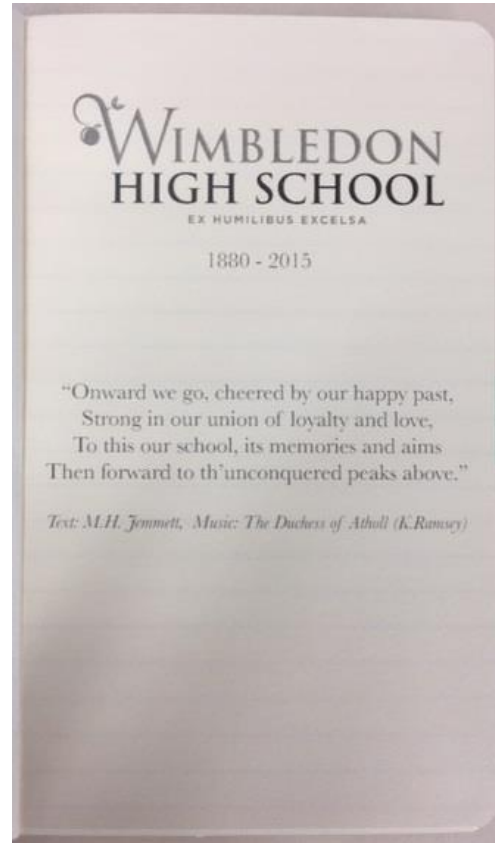 WIMBLEDON
HIGH SCHOOL
EX HUMILIBUS EXCELSA
1880 - 2015
“Onward we go, cheered by our happy past,
Strong in our union of loyalty and love,
To this our school, its memories and aims
Then forward to th’unconquered peaks above.”
Text: M.H. Jemmett, Music: The Duchess of Atholl (K.Ramsey)